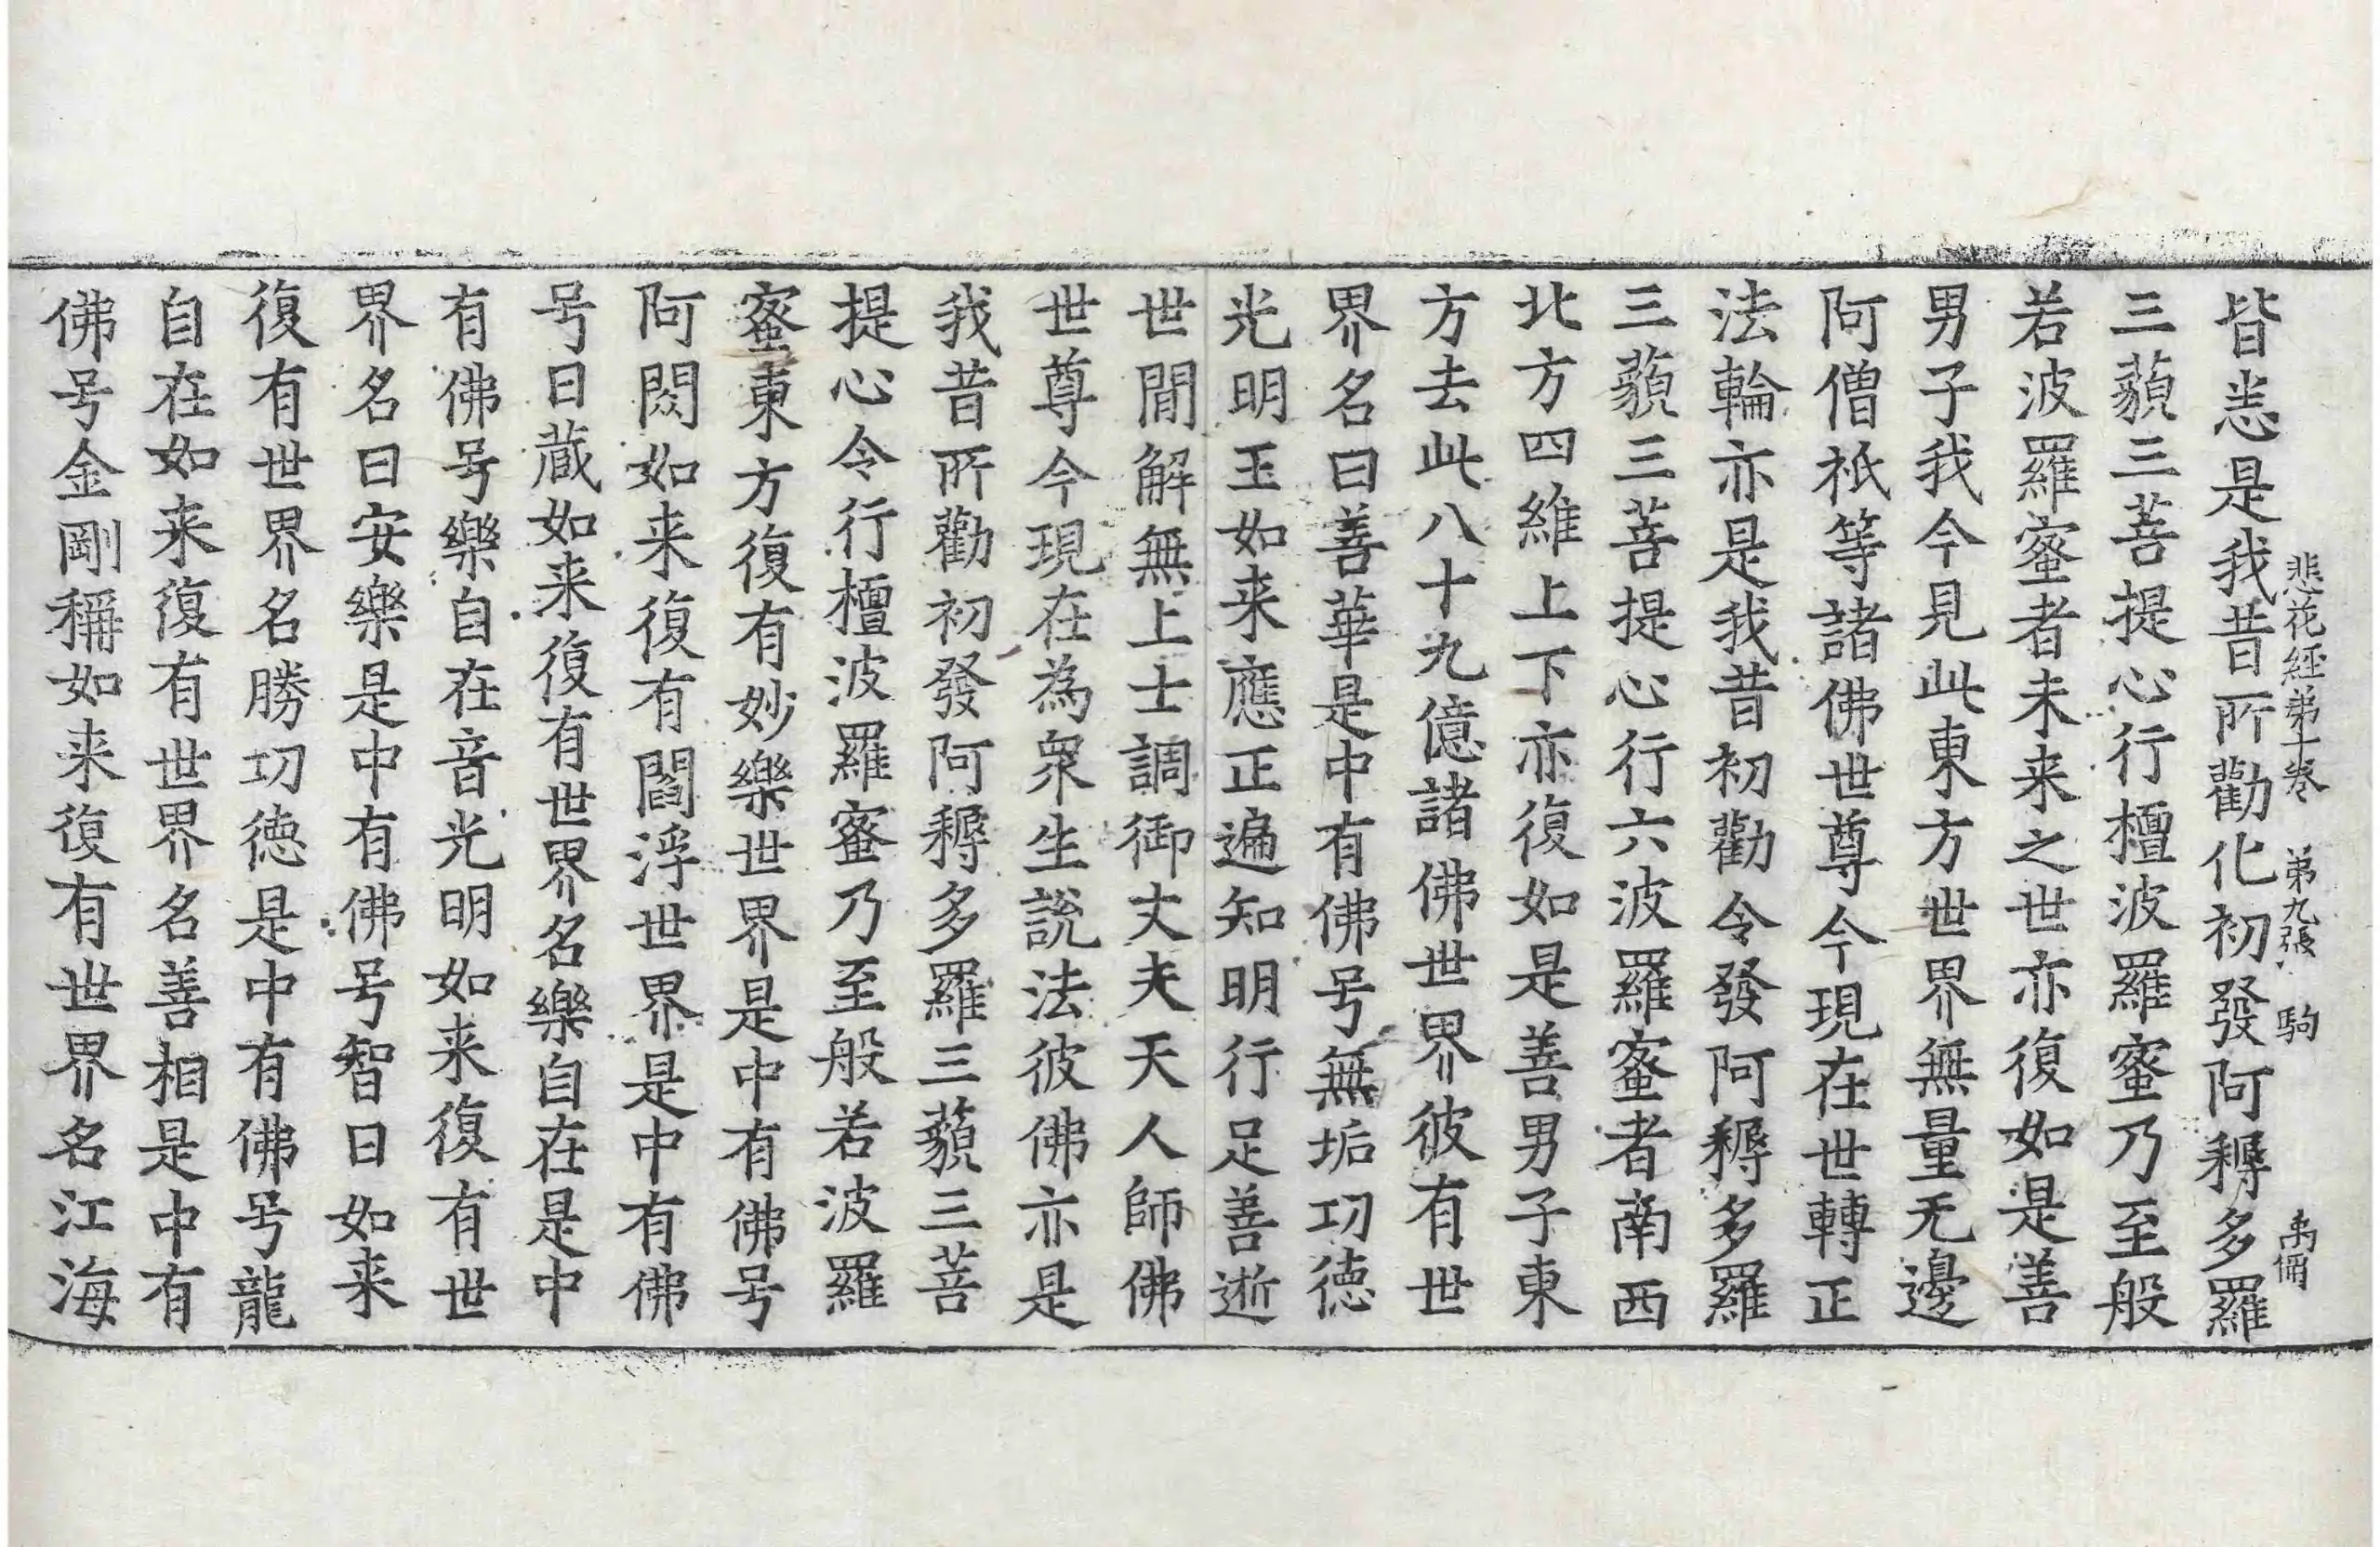 悲花経苐十卷 苐九張 駒 禹僴
皆悉是我昔所勸化初發阿耨多羅
三藐三菩提心行檀波羅蜜乃至般
若波羅蜜者未来之世亦復如是善
男子我今見此東方世界無量无邊
阿僧祇等諸佛世尊今現在世轉正
法輪亦是我昔初勸令發阿耨多羅
三藐三菩提心行六波羅蜜者南西
北方四維上下亦復如是善男子東
方去此八十九億諸佛世界彼有世
界名曰善華是中有佛号無垢功徳
光明王如来應正遍知明行足善逝
世間解無上士調御丈夫天人師佛
世尊今現在為衆生説法彼佛亦是
我昔所勸初發阿耨多羅三藐三菩
提心令行檀波羅蜜乃至般若波羅
蜜東方復有妙樂世界是中有佛号
阿閦如来復有閻浮世界是中有佛
号日蔵如来復有世界名樂自在是中
有佛号樂自在音光明如来復有世
界名曰安樂是中有佛号智日如来
復有世界名勝功徳是中有佛号龍
自在如来復有世界名善相是中有
佛号金剛稱如来復有世界名江海